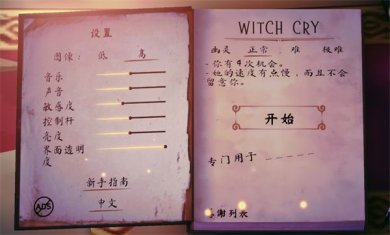 设置
图像: 低 高
音乐
声音
敏感度
控制杆
亮度
界面透明度
新手指南
中文
ADS
WITCH CRY
幽灵 正常 难 极难
- 你有4次机会。
- 她的速度有点慢, 而且不会
留意你。
开始
专门用于
谢列永